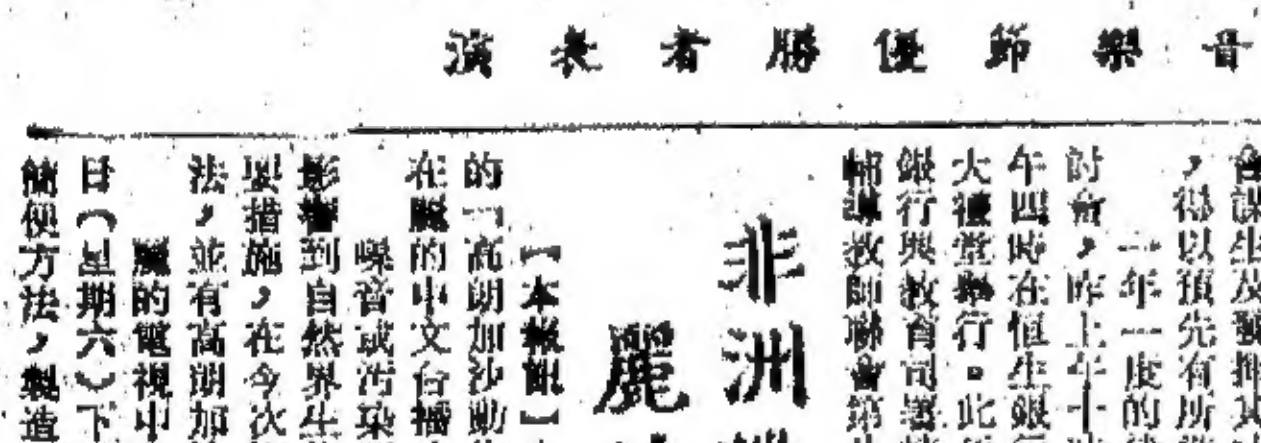 音樂節優勝者表演
會謀生及發揮其
，得以預先有所
一年一度的
討會，昨上午十
午四時在恒生銀行
大禮堂舉行。此
銀行與教育司署
輔導教師聯會第
非洲
麗
【本報訊】
的「高朗加沙動
在麗的中文台播
噪音或污染
影響到自然界生
要措施，在今次
法，並有高朗加
麗的電視中
日（星期六）下
簡便方法，製造